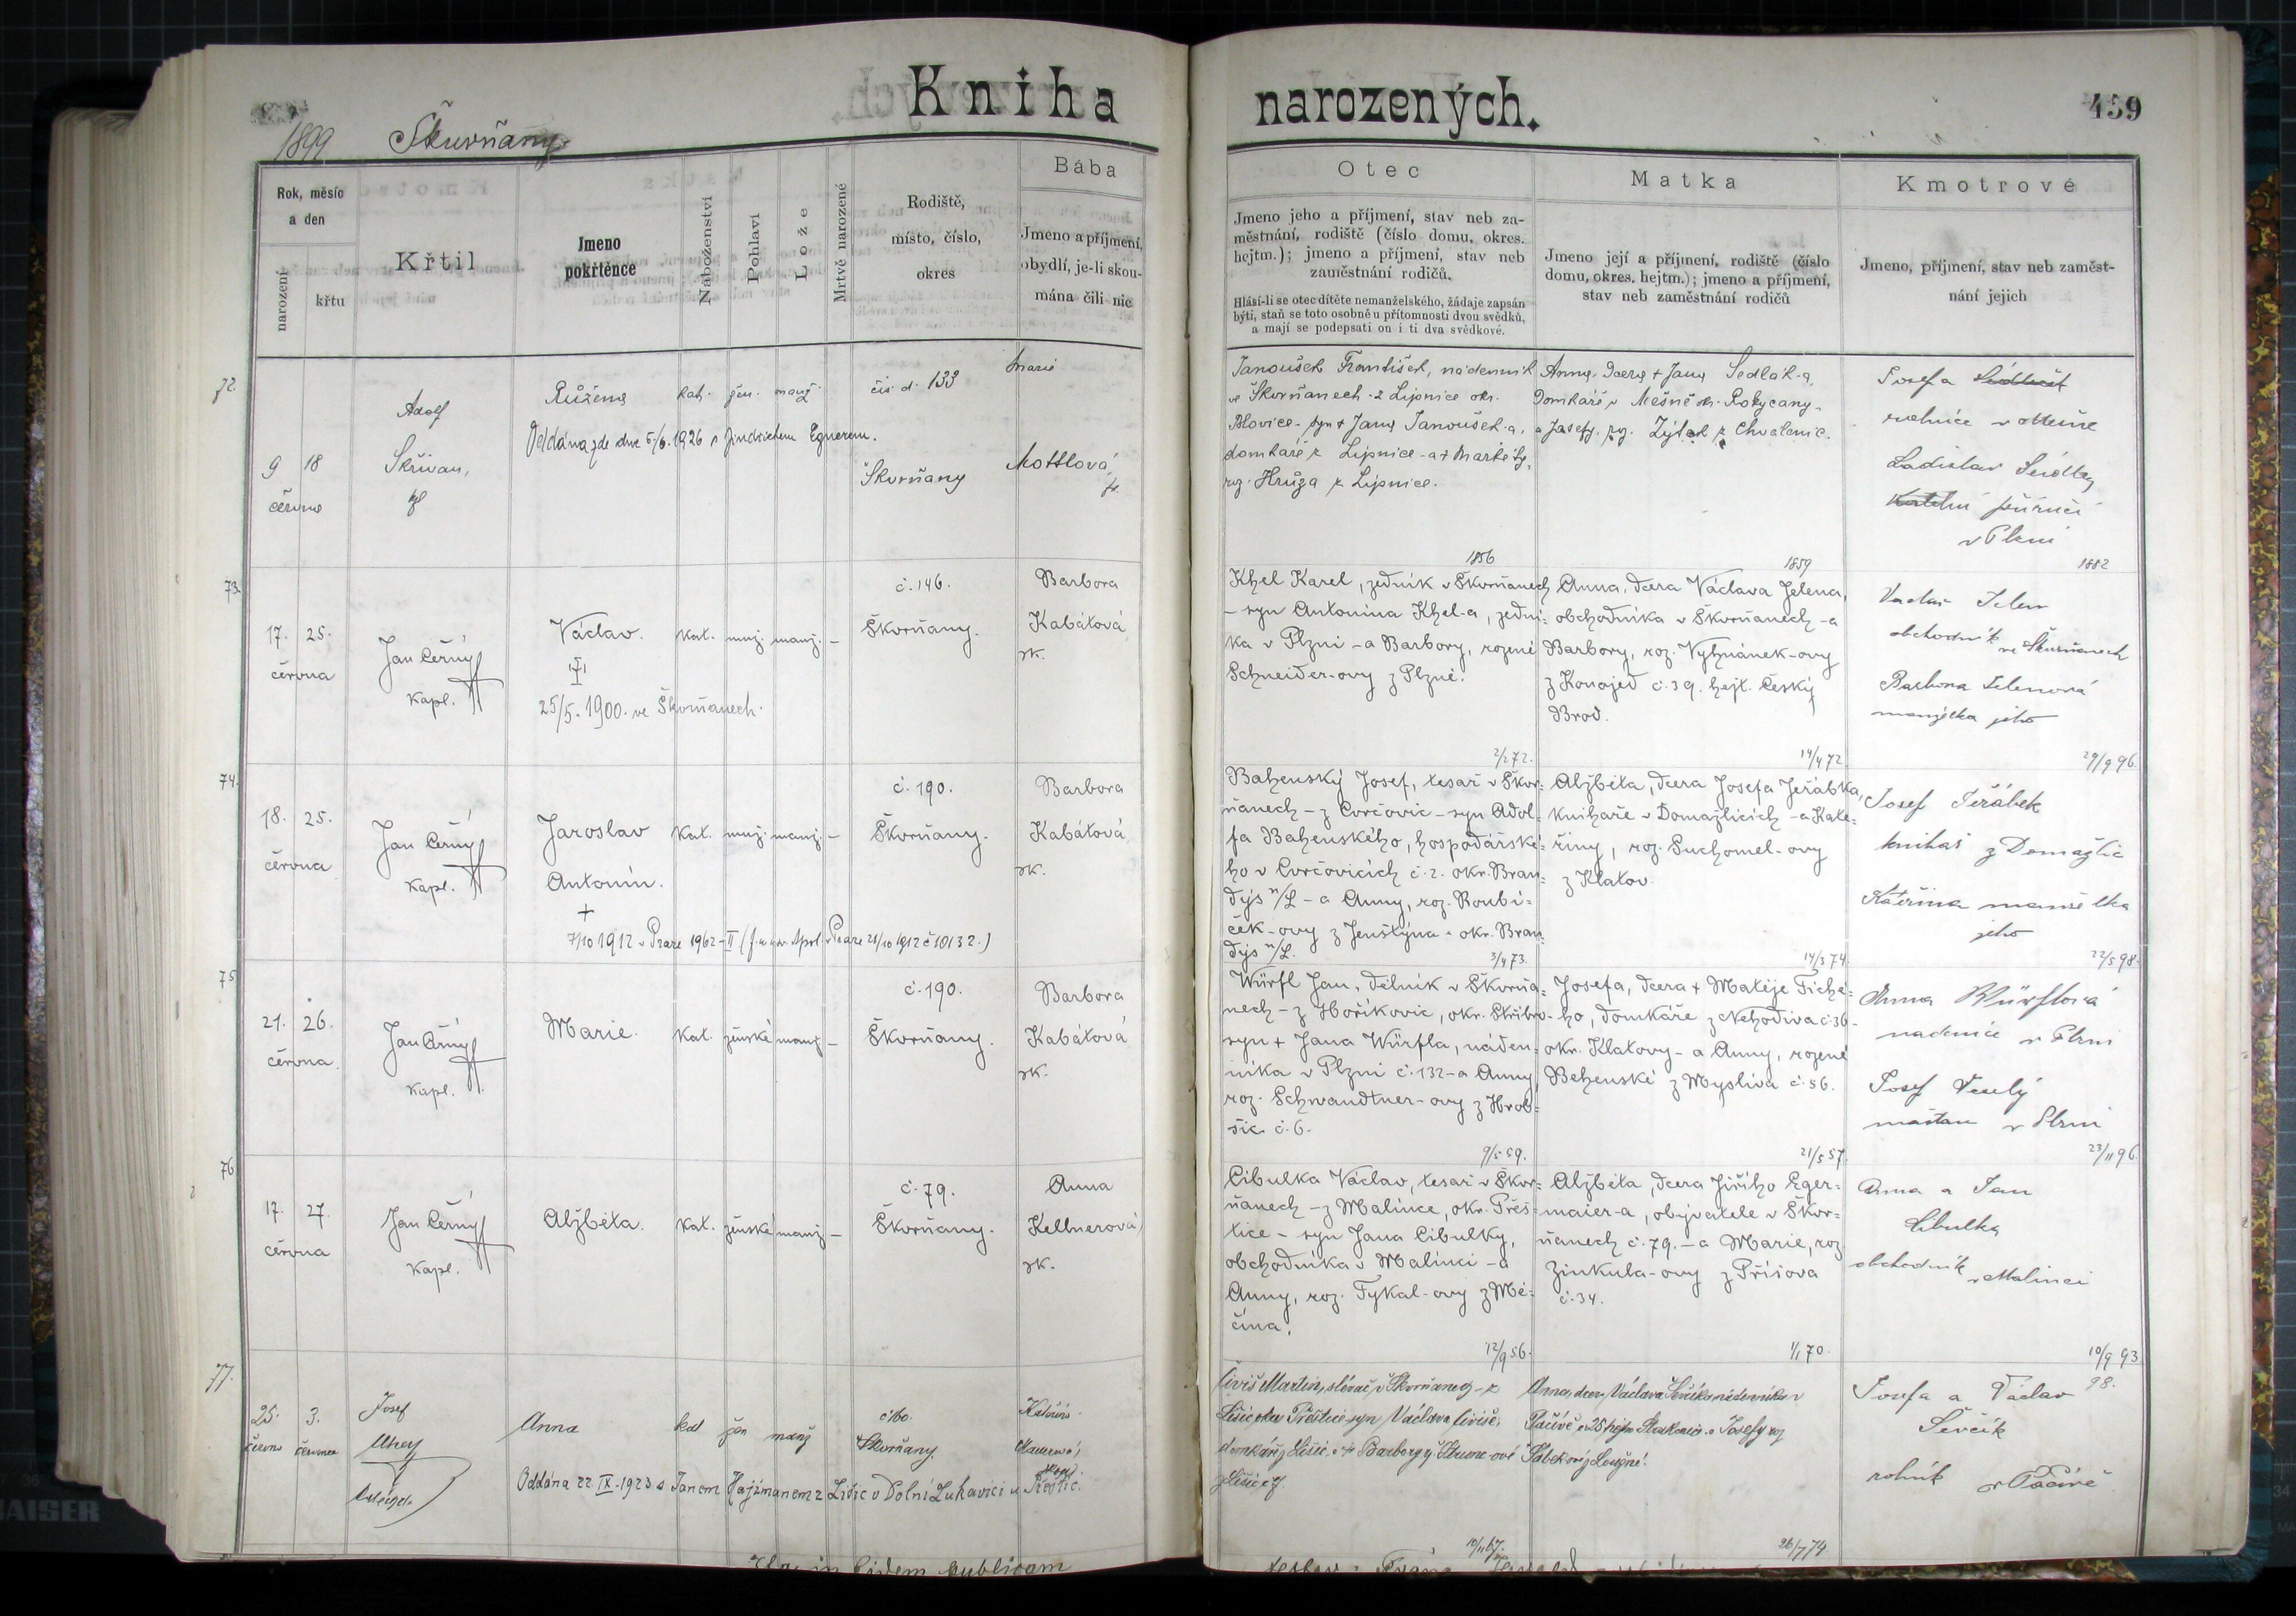 Kniha narozených.
459
1899 Škvrňany
Rok, měsíc
a den
narození
křtu
Křtil
Jmeno
pokřtěnce
Náboženství
Pohlaví
Lože
Mrtvě narozené
Rodiště,
místo, číslo,
okres
Bába
Jmeno a příjmení,
obydlí, je-li zkou-
mána čili nic
Otec
Jmeno jeho a příjmení, stav neb za-
městnání, rodiště (číslo domu, okres.
hejtm.); jmeno a příjmení, stav neb
zaměstnání rodičů.
Hlásí-li se otec dítěte nemanželského, žádaje zapsán
býti, staň se toto osobně u přítomnosti dvou svědků,
a mají se podepsati on i ti dva svědkové.
Matka
Jmeno její a příjmení, rodiště (číslo
domu, okres. hejtm.); jmeno a příjmení,
stav neb zaměstnání rodičů
Kmotrové
Jmeno, příjmení, stav neb zaměst-
nání jejich
72.
9 18
června
Adolf
Skřivan,
Růžena
kat. žen. manž.
Oddána zde dne 5./6. 1926 s Jindřichem Egnerem.
čís. d. 133
Škvrňany
Marie
Mottlová
Janoušek František, nádenník
ve Škvrňanech - z Lipnice okr.
Blovice - syn + Jana Janoušek-a,
domkáře z Lipnice - a + Markéty,
roz. Hrůza z Lipnice.
1856
Anna, dcera + Jana Sedlák-a,
domkáře v Mešně okr. Rokycany -
a Josefy, roz. Zýtek z Chválenic.
1859
Josefa
rolnice v Mešně
Ladislav
v Plzni
1882
73.
17. 25.
června
Jan Černý
kapl.
Václav.
kat. muž. manž. –
25/5. 1900. ve Škvrňanech.
č. 146.
Škvrňany.
Barbora
Kabátová
zk.
Khel Karel, zedník v Škvrňanech
– syn Antonína Khel-a, zední-
ka v Plzni – a Barbory, rozené
Schneider-ovy z Plzně.
2/2 72.
Anna, dcera Václava Jelena,
obchodníka v Škvrňanech – a
Barbory, roz. Vyhnánek-ovy
z Konojed č. 39. hejt. Český
Brod.
14/4 72
Václav Jelen
obchodník ve Škvrňanech
Barbora Jelenová
manželka jeho
29/9 96.
74.
18. 25.
června
Jan Černý
kapl.
Jaroslav
Antonín.
kat. muž. manž. –
+
7/10 1912 v Praze 1962-II
č. 190.
Škvrňany.
Barbora
Kabátová
zk.
Bahenský Josef, tesař v Škvr=
ňanech – z Cvrčovic – syn Adol=
fa Bahenského, hospodářské=
ho v Cvrčovicích č. 2. okr. Bran=
dýs n/L – a Anny, roz. Roubí=
ček-ovy z Jenštýna – okr. Bran=
dýs n/L.
3/4 73.
Alžběta, dcera Josefa Jeřábka,
knihaře v Domažlicích – a Kate=
řiny, roz. Suchomel-ovy
z Klatov.
14/3 74.
Josef Jeřábek
knihař z Domažlic
Kateřina manželka
jeho
22/5 98.
75.
21. 26.
června.
Jan Černý
kapl.
Marie.
kat. ženské manž. –
č. 190.
Škvrňany.
Barbora
Kabátová
zk.
Würfl Jan, dělník v Škvrňa=
nech – z Hoříkovic, okr. Stříbro –
syn + Jana Würfla, náden=
níka v Plzni č. 132 – a Anny,
roz. Schwandtner-ovy z Hrob=
šic č. 6.
9/5 59.
Josefa, dcera + Matěje Tiché=
ho, domkáře z Nehodiva č. 36 –
okr. Klatovy – a Anny, rozené
Behenské z Myslíva č. 56.
21/5 57.
Anna Würflová
nádenice v Plzni
Josef Veselý
měšťan v Plzni
23/11 96.
76.
17. 27.
června
Jan Černý
kapl.
Alžběta.
kat. ženské manž. –
č. 79.
Škvrňany.
Anna
Kellnerová,
zk.
Cibulka Václav, tesař v Škvr=
ňanech – z Malince, okr. Přeš=
tice – syn Jana Cibulky,
obchodníka v Malinci – a
Anny, roz. Tykal-ovy z Mě=
čína.
12/9 56.
Alžběta, dcera Jiřího Eger=
maier-a, obyvatele v Škvr=
ňanech č. 79. – a Marie, roz.
Zinkula-ovy z Příšova
č. 34.
1/1 70.
Anna a Jan
Cibulka
obchodník v Malinci
10/9 93.
98.
77.
25. 3.
června července
Josef
Anna
kat žen manž
Oddána 22. IX. 1923 s Janem Hajžmanem z Lišic v Dolní Lukavici u Přeštic.
č. 160.
Škvrňany.
Civiš Martin, slévač v Škvrňanech – z
Lišic okr. Přeštice syn Václava Civiše,
domkáře z Lišic
10/11 67.
Anna, dcera Václava Ševčíka nádenníka v
26/7 74.
Josefa a Václav
Ševčík
rolník v Pačivě